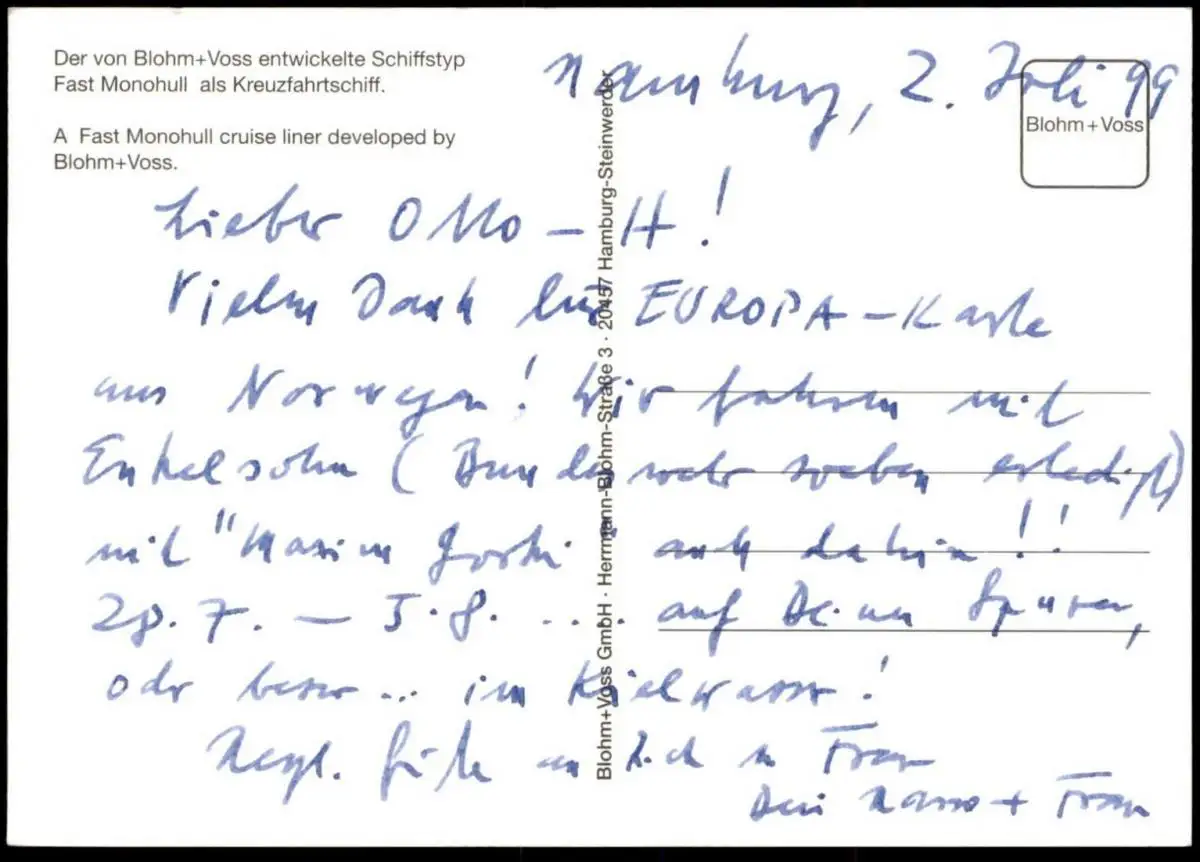 Der von Blohm+Voss entwickelte Schiffstyp
Fast Monohull als Kreuzfahrtschiff.
A Fast Monohull cruise liner developed by
Blohm+Voss.
Hamburg, 2. Juli 99
Blohm+Voss
Lieber Otto-H!
Vielen Dank für EUROPA-Karte
aus Norwegen! Wir fahren mit
Enkelsohn (Bundeswehr soeben erledigt)
mit "Maxim Gorki" auch dahin!!
28.7. – 5.8. .... auf Deinen Spuren,
oder besser... im Kielwasser!
Herzl. Grüße an Dich u Frau
Dein + Frau
Blohm+Voss GmbH · Hermann-Blohm-Straße 3 · 20457 Hamburg-Steinwerder